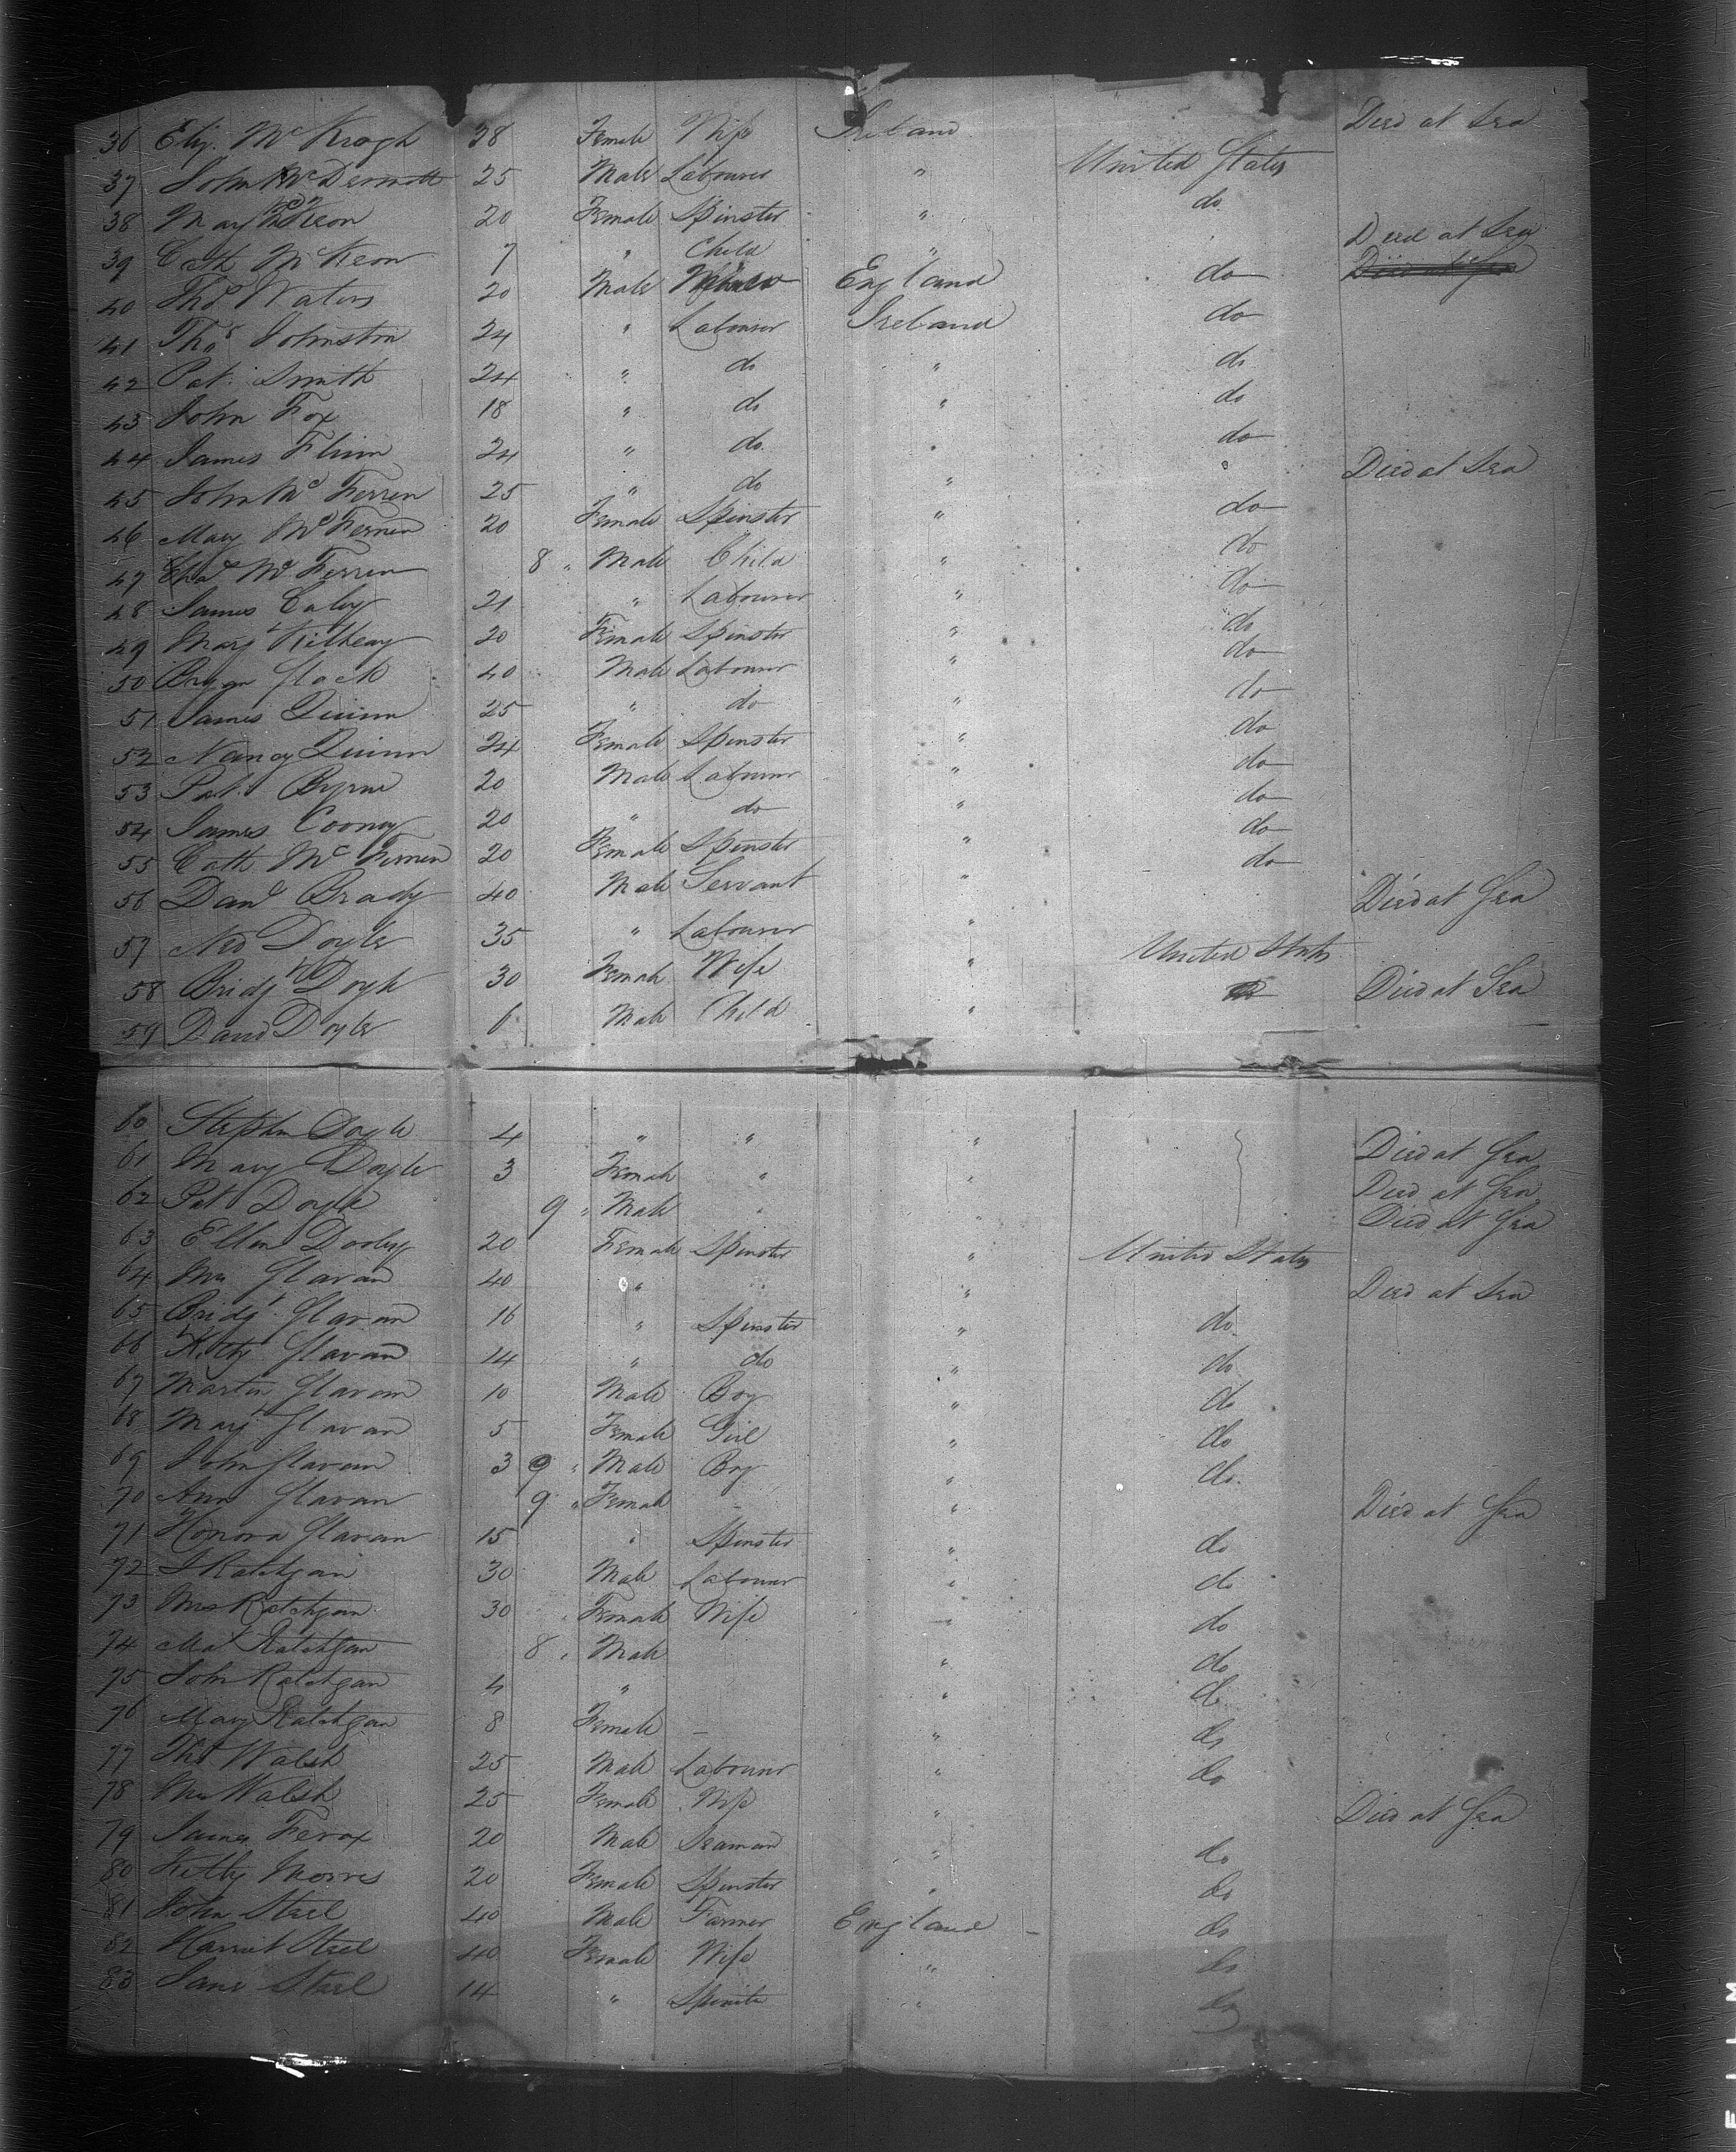 36 Eliz. McKeogh 28 Female Wife Ireland Died at Sea
37 John McDermott 25 Male Labourer " United States
38 Mary McKeon 20 Female Spinster " do
39 Cath McKeon 7 " Child " Died at Sea
40 Thos Waters 20 Male England do
41 Thos Johnston 24 " Labourer Ireland do
42 Pat. Smith 24 " do " do
43 John Fox 18 " do " do
44 James Flinn 24 " do " do
45 John Mc Ferren 25 " do " Died at Sea
46 Mary Mc Ferren 20 Female Spinster " do
47 Mc Ferren 8 " Male Child " do
48 James Caley 21 " Labourer " do
49 Margt 20 Female Spinster " do
50 Bryan Flack 40 Male Labourer " do
51 James Quinn 25 " do " do
52 Nancy Quinn 24 Female Spinster " do
53 Pat. Byrne 20 Male Labourer " do
54 James Cooney 20 " do " do
55 Cath Mc Ferren 20 Female Spinster " do
56 Danl Brady 40 Male Servant " Died at Sea
57 Ned Doyle 35 " Labourer " United States
58 Bridgt Doyle 30 Female Wife " Died at Sea
59 David Doyle 6 Male Child "
60 Stephen Doyle 4 " " " Died at Sea
61 Mary Doyle 3 Female " " Died at Sea
62 Pat Doyle 9 " Male " " Died at Sea
63 Ellen Dooley 20 Female Spinster " United States
64 Mrs Glavan 40 " " Died at Sea
65 Bridgt Glavan 16 " Spinster " do
66 Kitty Glavan 14 " do " do
67 Martin Glavan 10 Male Boy " do
68 Margt Glavan 5 Female Girl " do
69 John Glavan 3 9 " Male Boy " do
70 Ann Glavan 9 " Female - " Died at Sea
71 Honora Glavan 15 " Spinster " do
72 Ratchgan 30 Male Labourer " do
73 Mrs Ratchgan 30 Female Wife " do
74 Ratchgan 8 " Male " do
75 John Ratchgan 4 " " do
76 Mary Ratchgan 8 Female - " do
77 Thos Walsh 25 Male Labourer " do
78 Mrs Walsh 25 Female Wife " Died at Sea
79 James Ferox 20 Male Seaman " do
80 Kitty Morris 20 Female Spinster " do
81 John Steel 40 Male Farmer England - do
82 Harriet Steel 40 Female Wife " do
83 Jane Steel 14 " Spinste " do